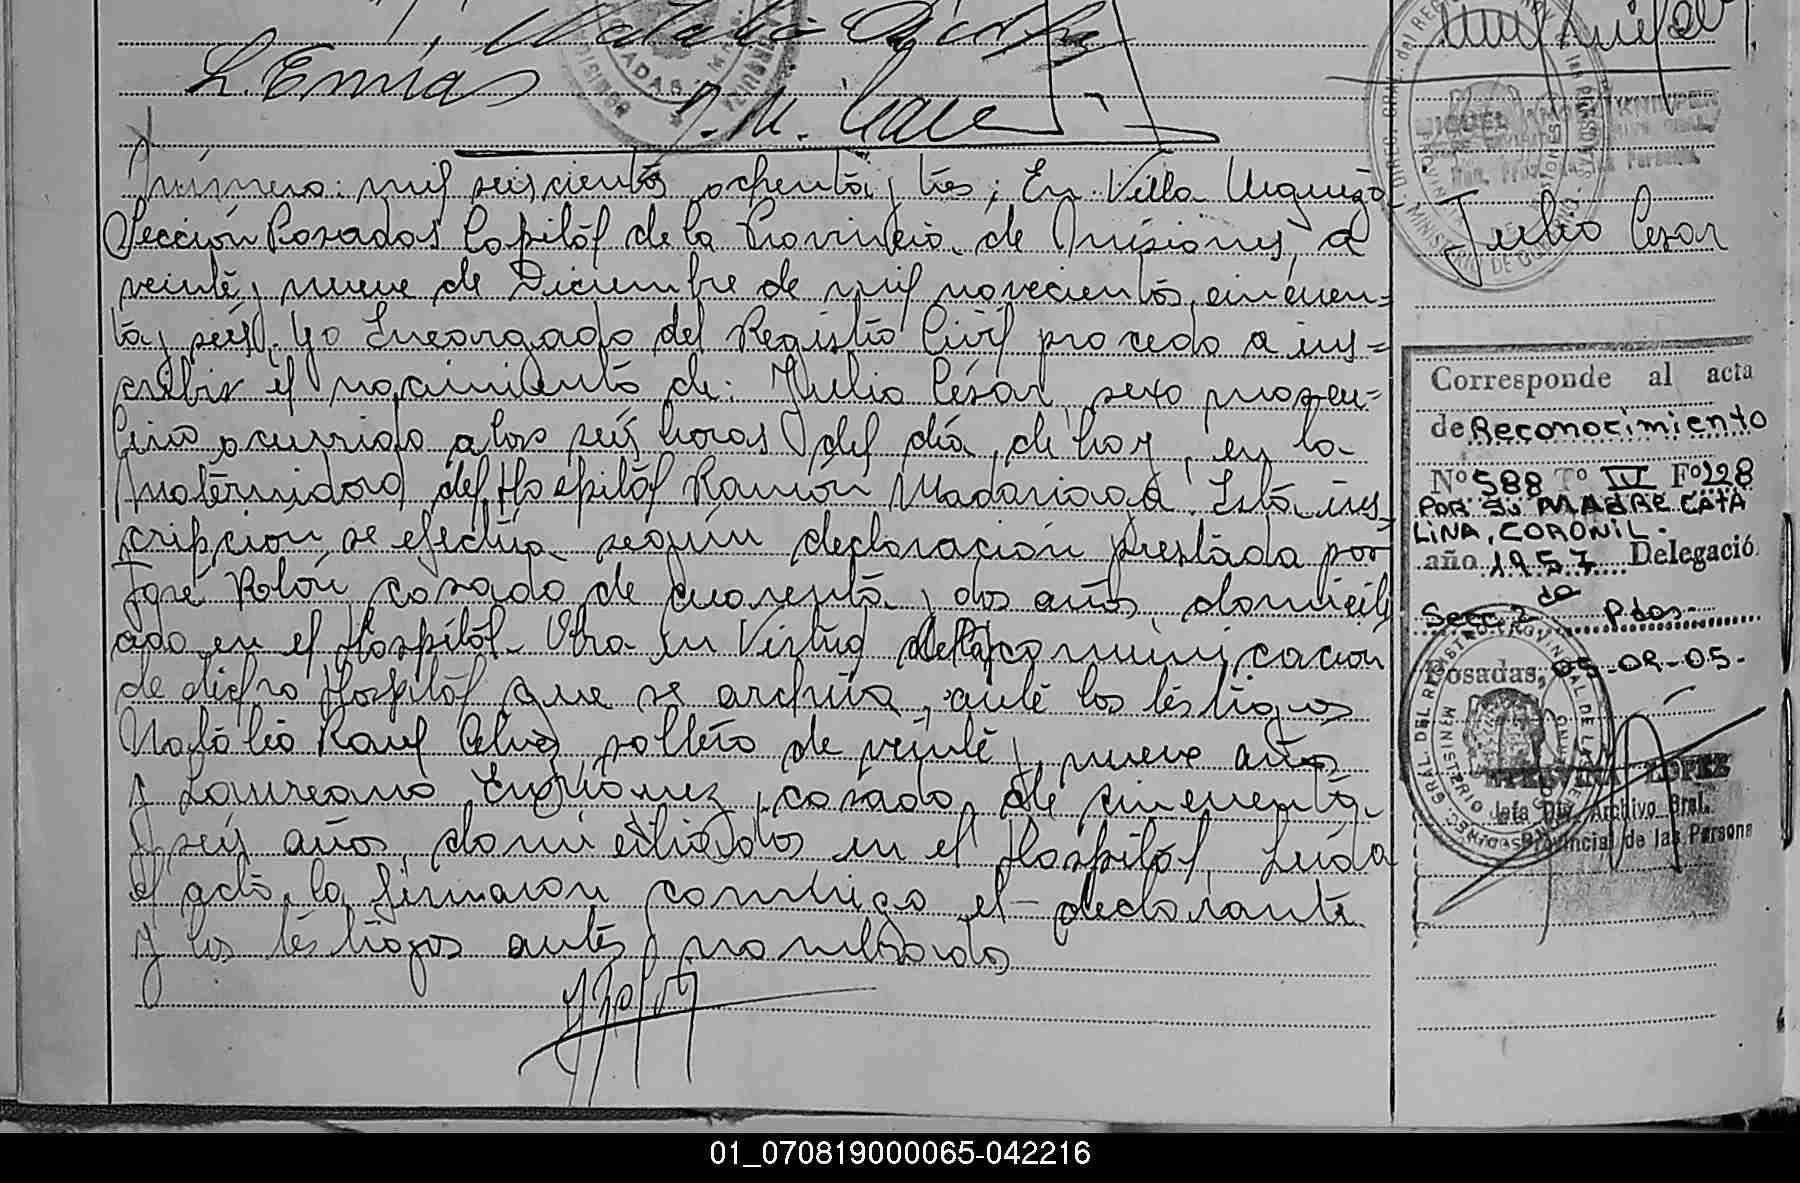 L. Enrias
Número: mil seiscientos ochenta y tres; En Villa Urquiza
Sección Posadas Capital de la Provincia de Misiones, a
veinte y nueve de Diciembre de mil novecientos cincuen=
ta y seis, yo Encargado del Registro Civil procedo a ins=
cribir el nacimiento de: Julio César, sexo mascu=
lino ocurrido a las seis horas del día de hoy, en la
Maternidad del Hospital Ramón Madariaga. Esta ins
cripción se efectúa según declaración prestada por
José Rolón, casado de cuarenta y dos años domicili
ado en el Hospital. Obra en virtud de la comunicación
de dicho Hospital que se archiva, ante los testigos
Natalio Raul soltero de veinte y nueve años
y Laureano casado, de cincuenta
y seis años, domiciliados en el Hospital. Leida
el acta, la firmaron conmigo el declarante
y los testigos antes nombrados
Julio Cesar
Corresponde al acta
de Reconocimiento
Nº 588 Tº IV Fº 128
POR SU MADRE CATA
LINA, CORONIL.
año 1957 Delegació
Secc 2da Pdas
Posadas, 05-09-05-
LOPEZ
Jefa Div. Archivo Gral.
Provincial de las Persona
01_070819000065-042216